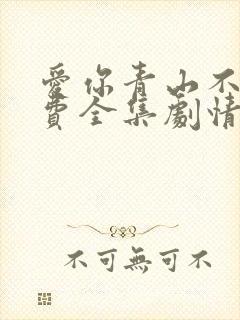 愛你青山不
費全集劇情
不可無可不